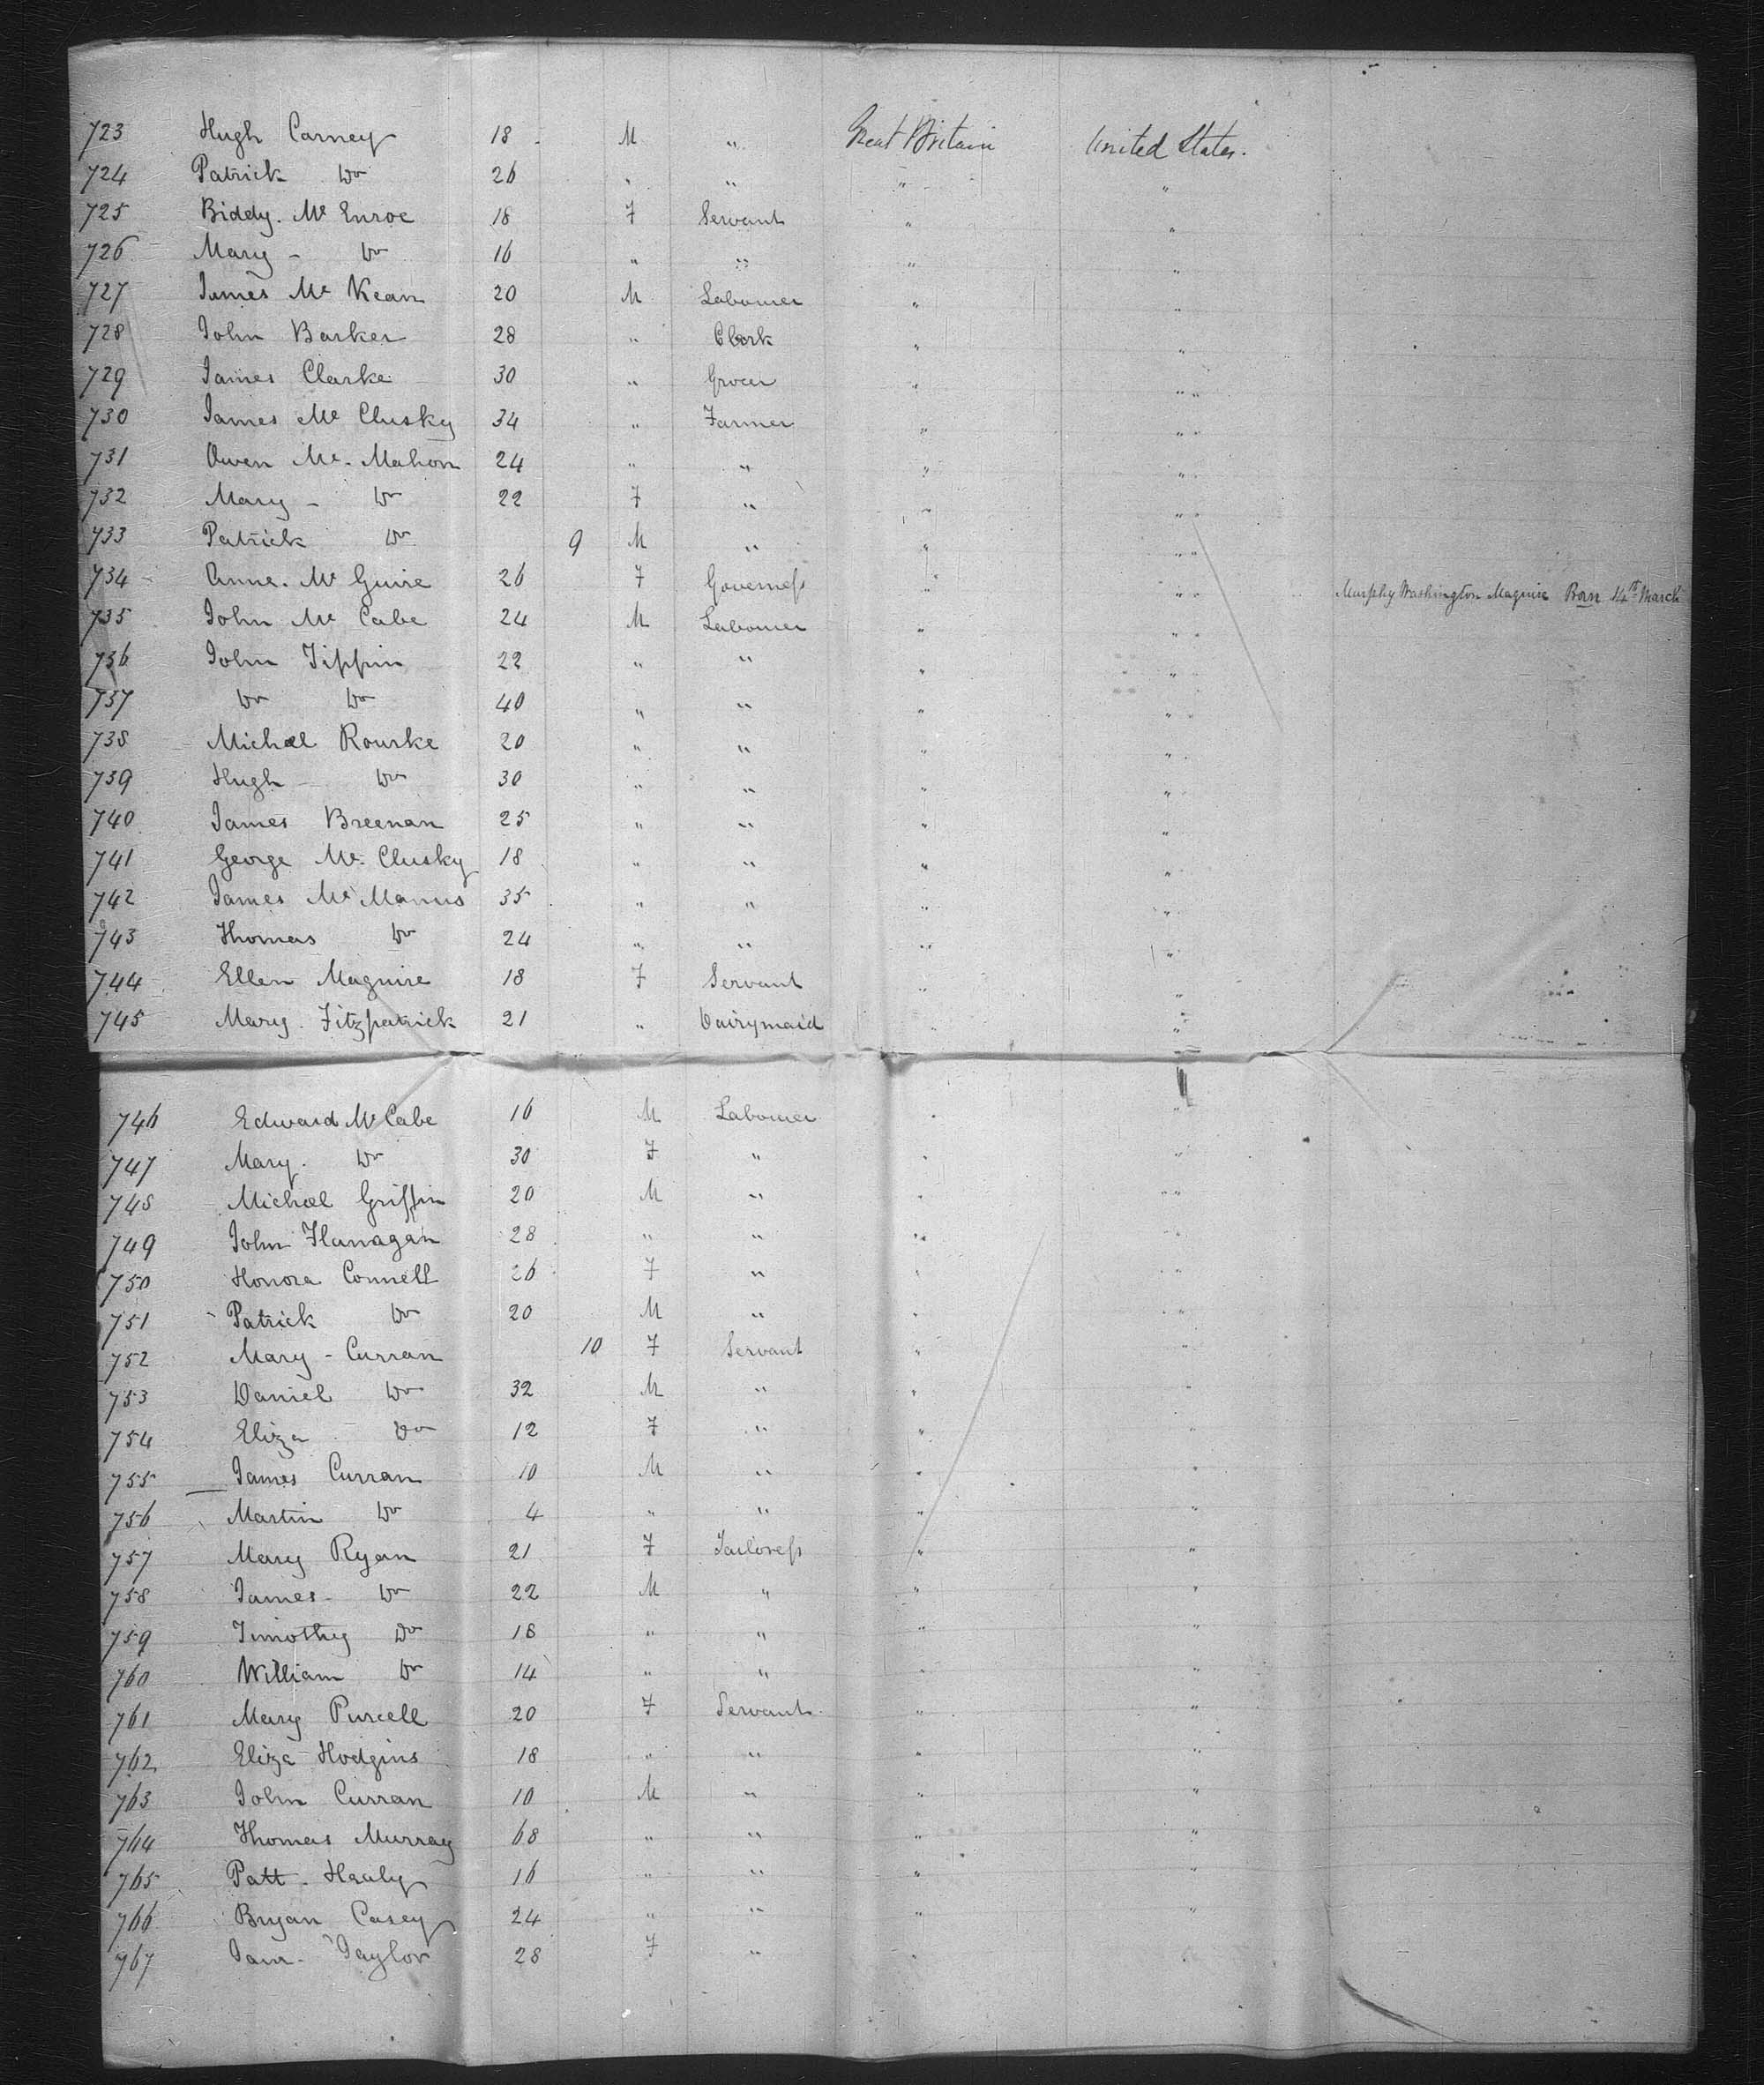 723 Hugh Carney 18 - M " Great Britain United States.
724 Patrick Do 26 " " " "
725 Biddy. Mc Enroe 18 F Servant " "
726 Mary - Do 16 " " " "
727 James Mc Kean 20 M Labourer " "
728 John Barker 28 " Clerk " "
729 James Clarke 30 " Grocer " "
730 James Mc Clusky 34 " Farmer " "
731 Owen Mc. Mahon 24 " " " "
732 Mary - Do 22 F " " "
733 Patrick Do 9 M " " "
734 Anne. Mc Guire 26 F Governess " " Murphy Washington Maguire Born 14th March
735 John Mc Cabe 24 M Labourer " "
736 John Tippin 22 " " " "
737 Do Do 40 " " " "
738 Michael Rourke 20 " " " "
739 Hugh - Do 30 " " " "
740 James Breenan 25 " " " "
741 George Mc. Clusky 18 " " " "
742 James Mc Manus 35 " " " "
743 Thomas Do 24 " " " "
744 Ellen Maguire 18 F Servant " "
745 Mary. Fitzpatrick 21 " Dairymaid " "
746 Edward Mc Cabe 16 M Labourer " "
747 Mary. Do 30 F " " "
748 Michael Griffin 20 M " " "
749 John Flanagan 28 " " " "
750 Honora Connell 26 F " " "
751 Patrick Do 20 M " " "
752 Mary - Curran 10 F Servant " "
753 Daniel Do 32 M " " "
754 Eliza Do 12 F " " "
755 James Curran 10 M " " "
756 Martin Do 4 " " " "
757 Mary Ryan 21 F Tailoress " "
758 James - Do 22 M " " "
759 Timothy Do 18 " " " "
760 William Do 14 " " " "
761 Mary Purcell 20 F Servant " "
762 Eliza Hodgins 18 " " " "
763 John Curran 10 M " " "
764 Thomas Murray 68 " " " "
765 Patt - Healy 16 " " " "
766 Bryan Casey 24 " " " "
767 Taylor 28 F " "